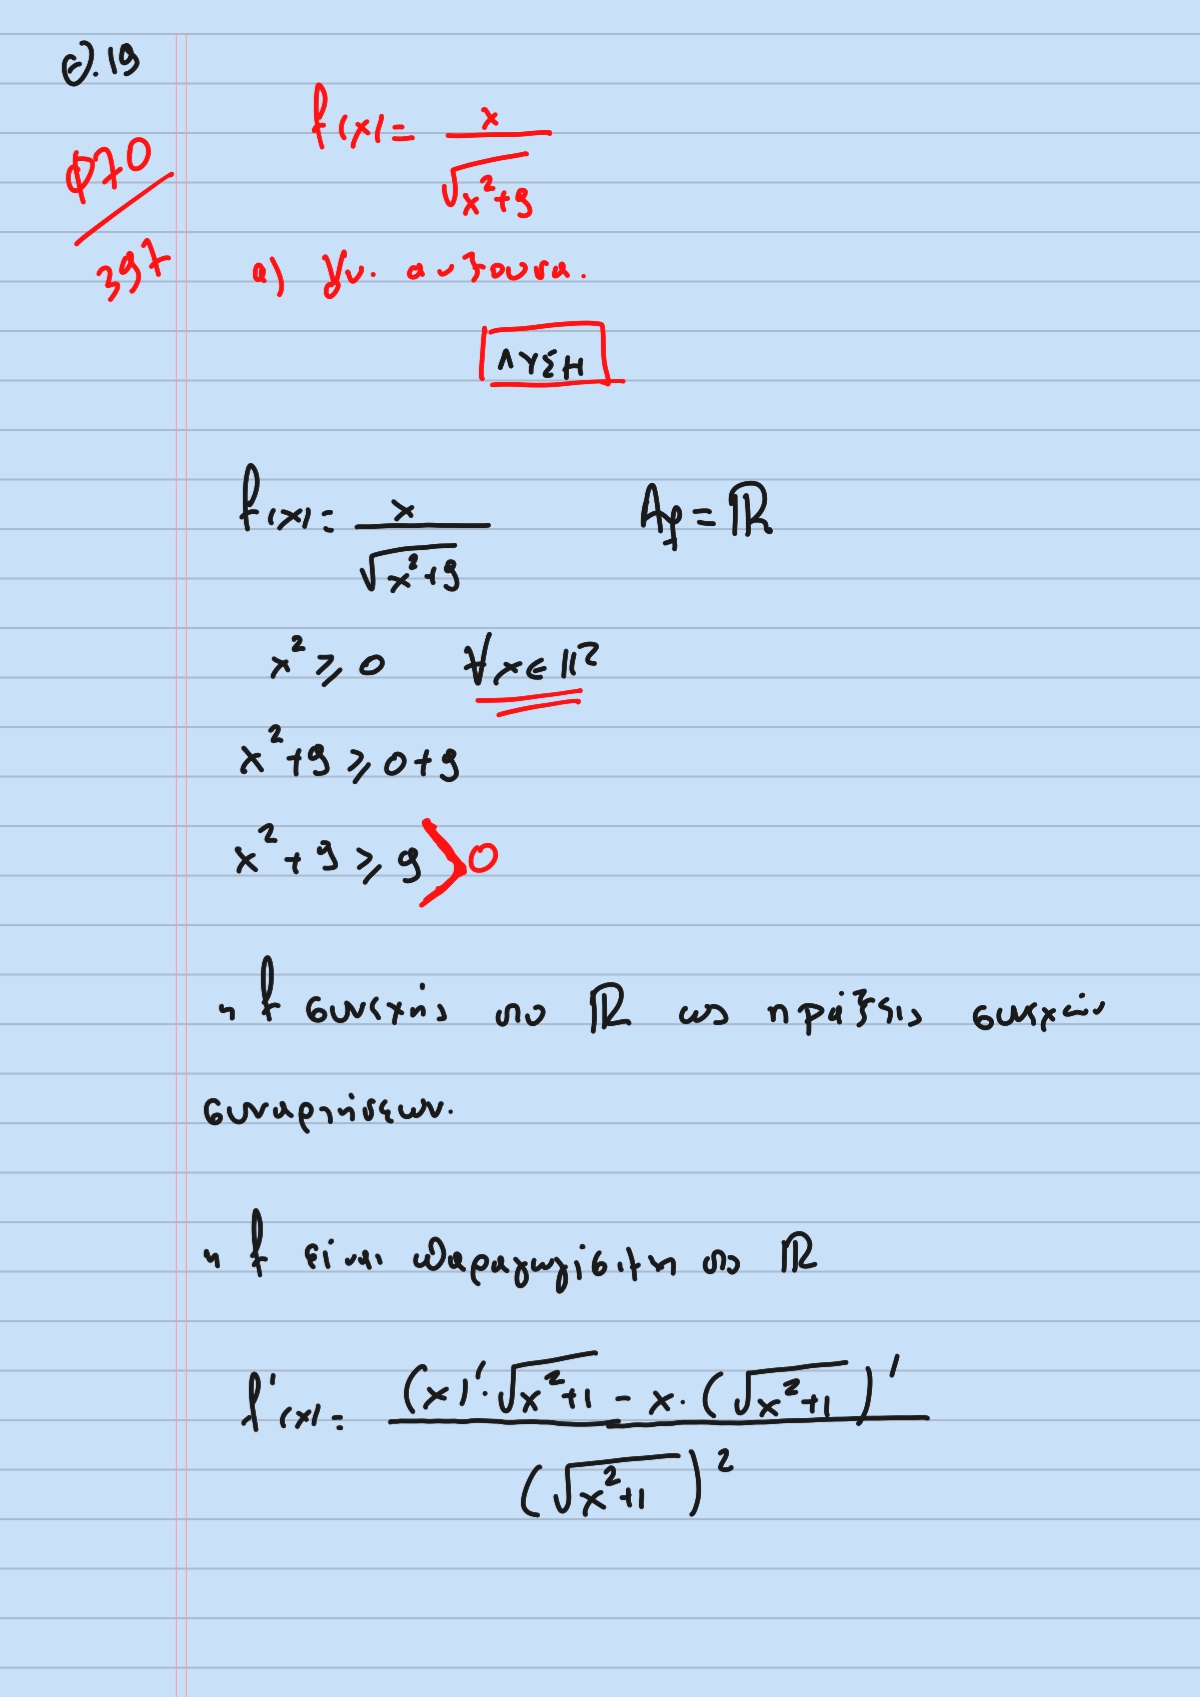 Θ.19
φ70
397
f(x) = x / √(x²+9)
α) γν. αύξουσα.
ΛΥΣΗ
f(x) = x / √(x²+9) Af = ℝ
x² ≥ 0 ∀x∈ℝ
x²+9 ≥ 0+9
x²+9 ≥ 9 > 0
η f συνεχής στο ℝ ως πράξεις συνεχών
συναρτήσεων.
η f είναι παραγωγίσιμη στο ℝ
f'(x) = ((x)'·√(x²+1) - x·(√(x²+1))') / (√(x²+1))²